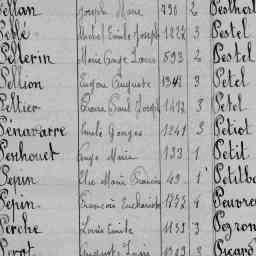 Pellan Joseph Marie 730 2 Pesthert
Pellé Michel Emile Joseph 1222 3 Pestel
Pellerin Marie Ange Louis 593 2 Pestel
Pellion Eugène Auguste 3 Petel
Peltier Pierre Paul Joseph 1417 3 Petel
Pénavarre Emile Georges 1241 3 Petiot
Penhouet Ange Marie 133 1 Petit
Pépin Elie Marie François 49 1 Petitbo
Pépin François Euchariste 1757 4
Perche Louis Emile 1153 3
Auguste Jean 3 Picard